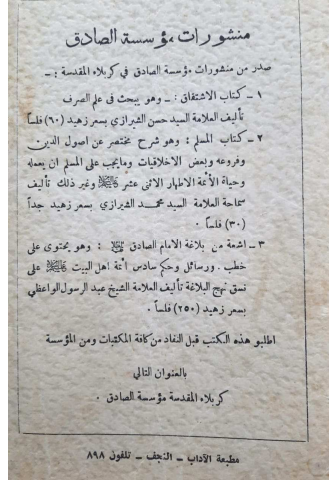 منشورات مؤسسة الصادق
صدر من منشورات مؤسسة الصادق في كربلاء المقدسة : ـ
١ ـ كتاب الاشتقاق : ـ وهو يبحث في علم الصرف
تأليف العلامة السيد حسن الشيرازي بسعر زهيد (٦٠) فلساً
٢ ـ كتاب المسلم : وهو شرح مختصر عن اصول الدين
وفروعه وبعض الاخلاقيات ومايجب على المسلم ان يعمله
وحياة الأئمة الاطهار الاثنى عشر وغير ذلك تأليف
سماحة العلامة السيد محمد الشيرازي بسعر زهيد جداً
(٣٠) فلساً .
٣ ـ اشعة من بلاغة الامام الصادق : وهو يحتوى على
خطب . ورسائل وحكم سادس أئمة اهل البيت على
نسق نهج البلاغة تأليف العلامة الشيخ عبد الرسول الواعظي
بسعر زهيد (٢٥٠) فلساً .
اطلبو هذه الكتب قبل النفاد من كافة المكتبات ومن المؤسسة
بالعنوان التالي
كربلاء المقدسة مؤسسة الصادق .
مطبعة الآداب ـ النجف ـ تلفون ٨٩٨